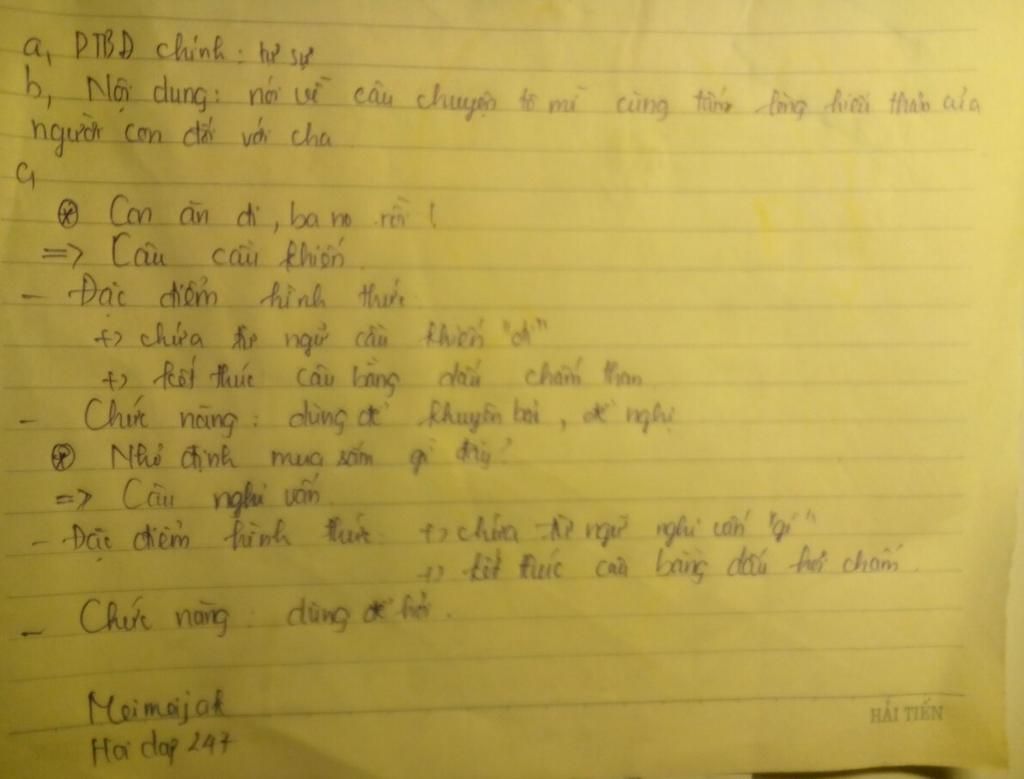 a, PTBĐ chính: tự sự
b, Nội dung: nói về câu chuyện tô mì cùng tấm lòng hiếu thảo của
người con đối với cha
c,
* Con ăn đi, ba no rồi!
=> Câu cầu khiến.
- Đặc điểm hình thức
+> chứa từ ngữ cầu khiến "đi"
+> kết thúc câu bằng dấu chấm than
- Chức năng: dùng để khuyên bảo, đề nghị
* Nhỏ định mua sắm gì đây?
=> Câu nghi vấn.
- Đặc điểm hình thức: +> chứa từ ngữ nghi vấn "gì"
+> kết thúc câu bằng dấu hỏi chấm.
- Chức năng: dùng để hỏi.
Moimoijak
Hoi dap 247
HẢI TIẾN